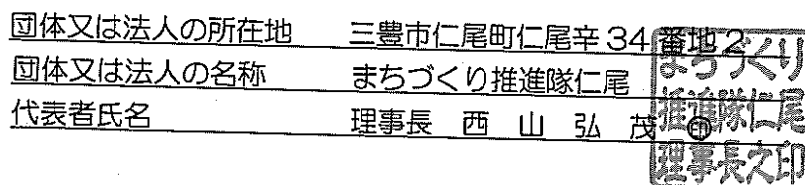 団体又は法人の所在地　三豊市仁尾町仁尾辛34番地2
団体又は法人の名称　まちづくり推進隊仁尾
代表者氏名　理事長　西　山　弘　茂　㊞
まちづくり
推進隊仁尾
理事長之印